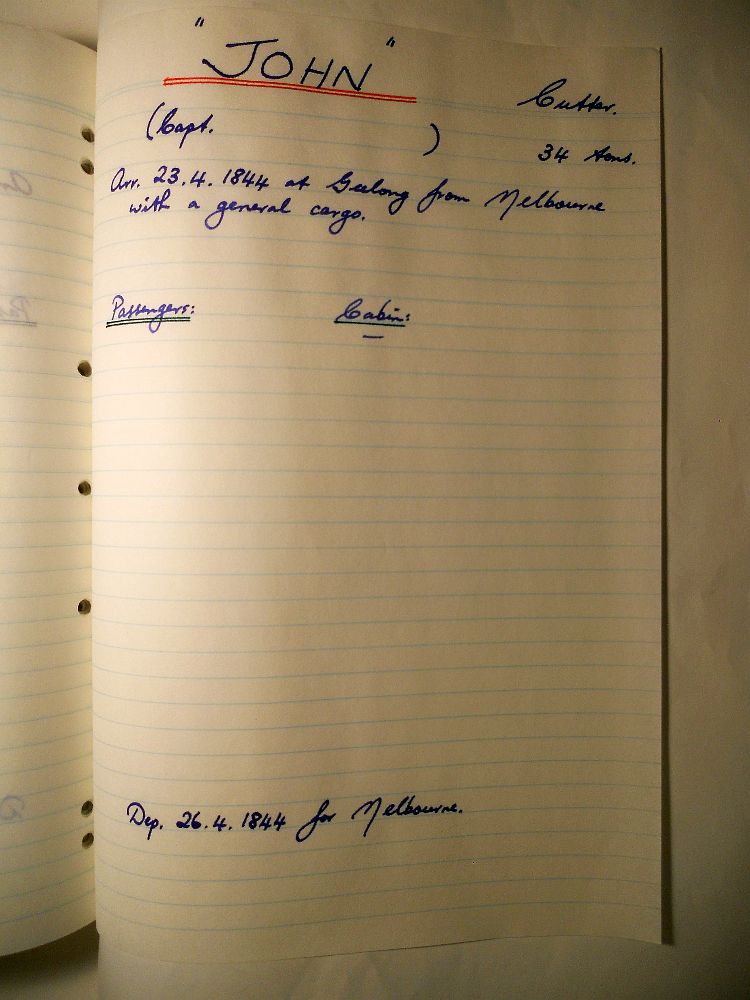 "JOHN"
Cutter.
(Capt. )
34 tons.
Arr. 23.4.1844 at Geelong from Melbourne
with a general cargo.
Passengers: Cabin:
—
Dep. 26.4.1844 for Melbourne.